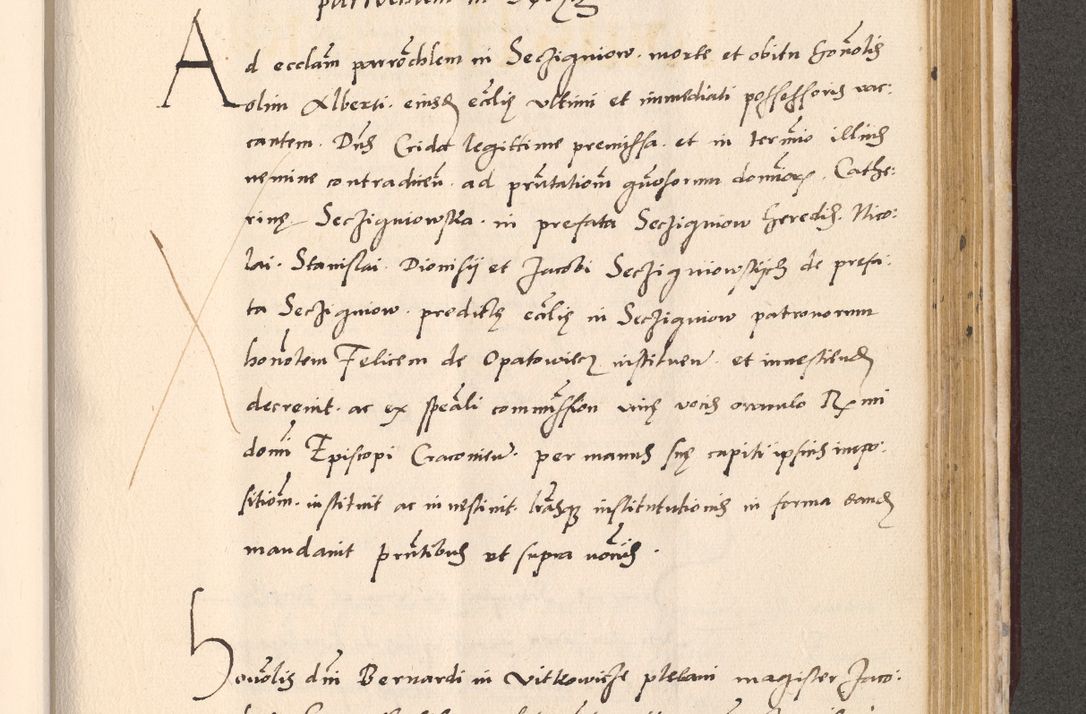 Ad ecclam parrochlem in Secziqniow. morte et obitu honolis
olim Alberti. eiusd ecclie ultimi et immediati possessoris vac:
cantem. Dns Crida legittime premissa. et in termio illius
nemine contradicen. ad prntationem gnosorum domior. Cathe:
rine Secziqniowska. in prefata Secziqniow heredis. Nico:
lai. Stanislai. Dionisij et Jacobi Secziqniowskych de prefa:
ta Secziqniow. predicte ecclie in Secziqniow patronorum
honolem Felicem de Opatowiecz instituen. et investiend
decrevit. ac ex speali commission vive vocis oraculo Rxmi
domi Episcopi Cracovien. per manus sue capiti ipsius impo:
sitiom. instituit ac investivit. lrasq institutionis in forma eand
mandavit prntibus ut supra
Honolis dni Bernardi in Vitkowicze plebani magister Jaco: